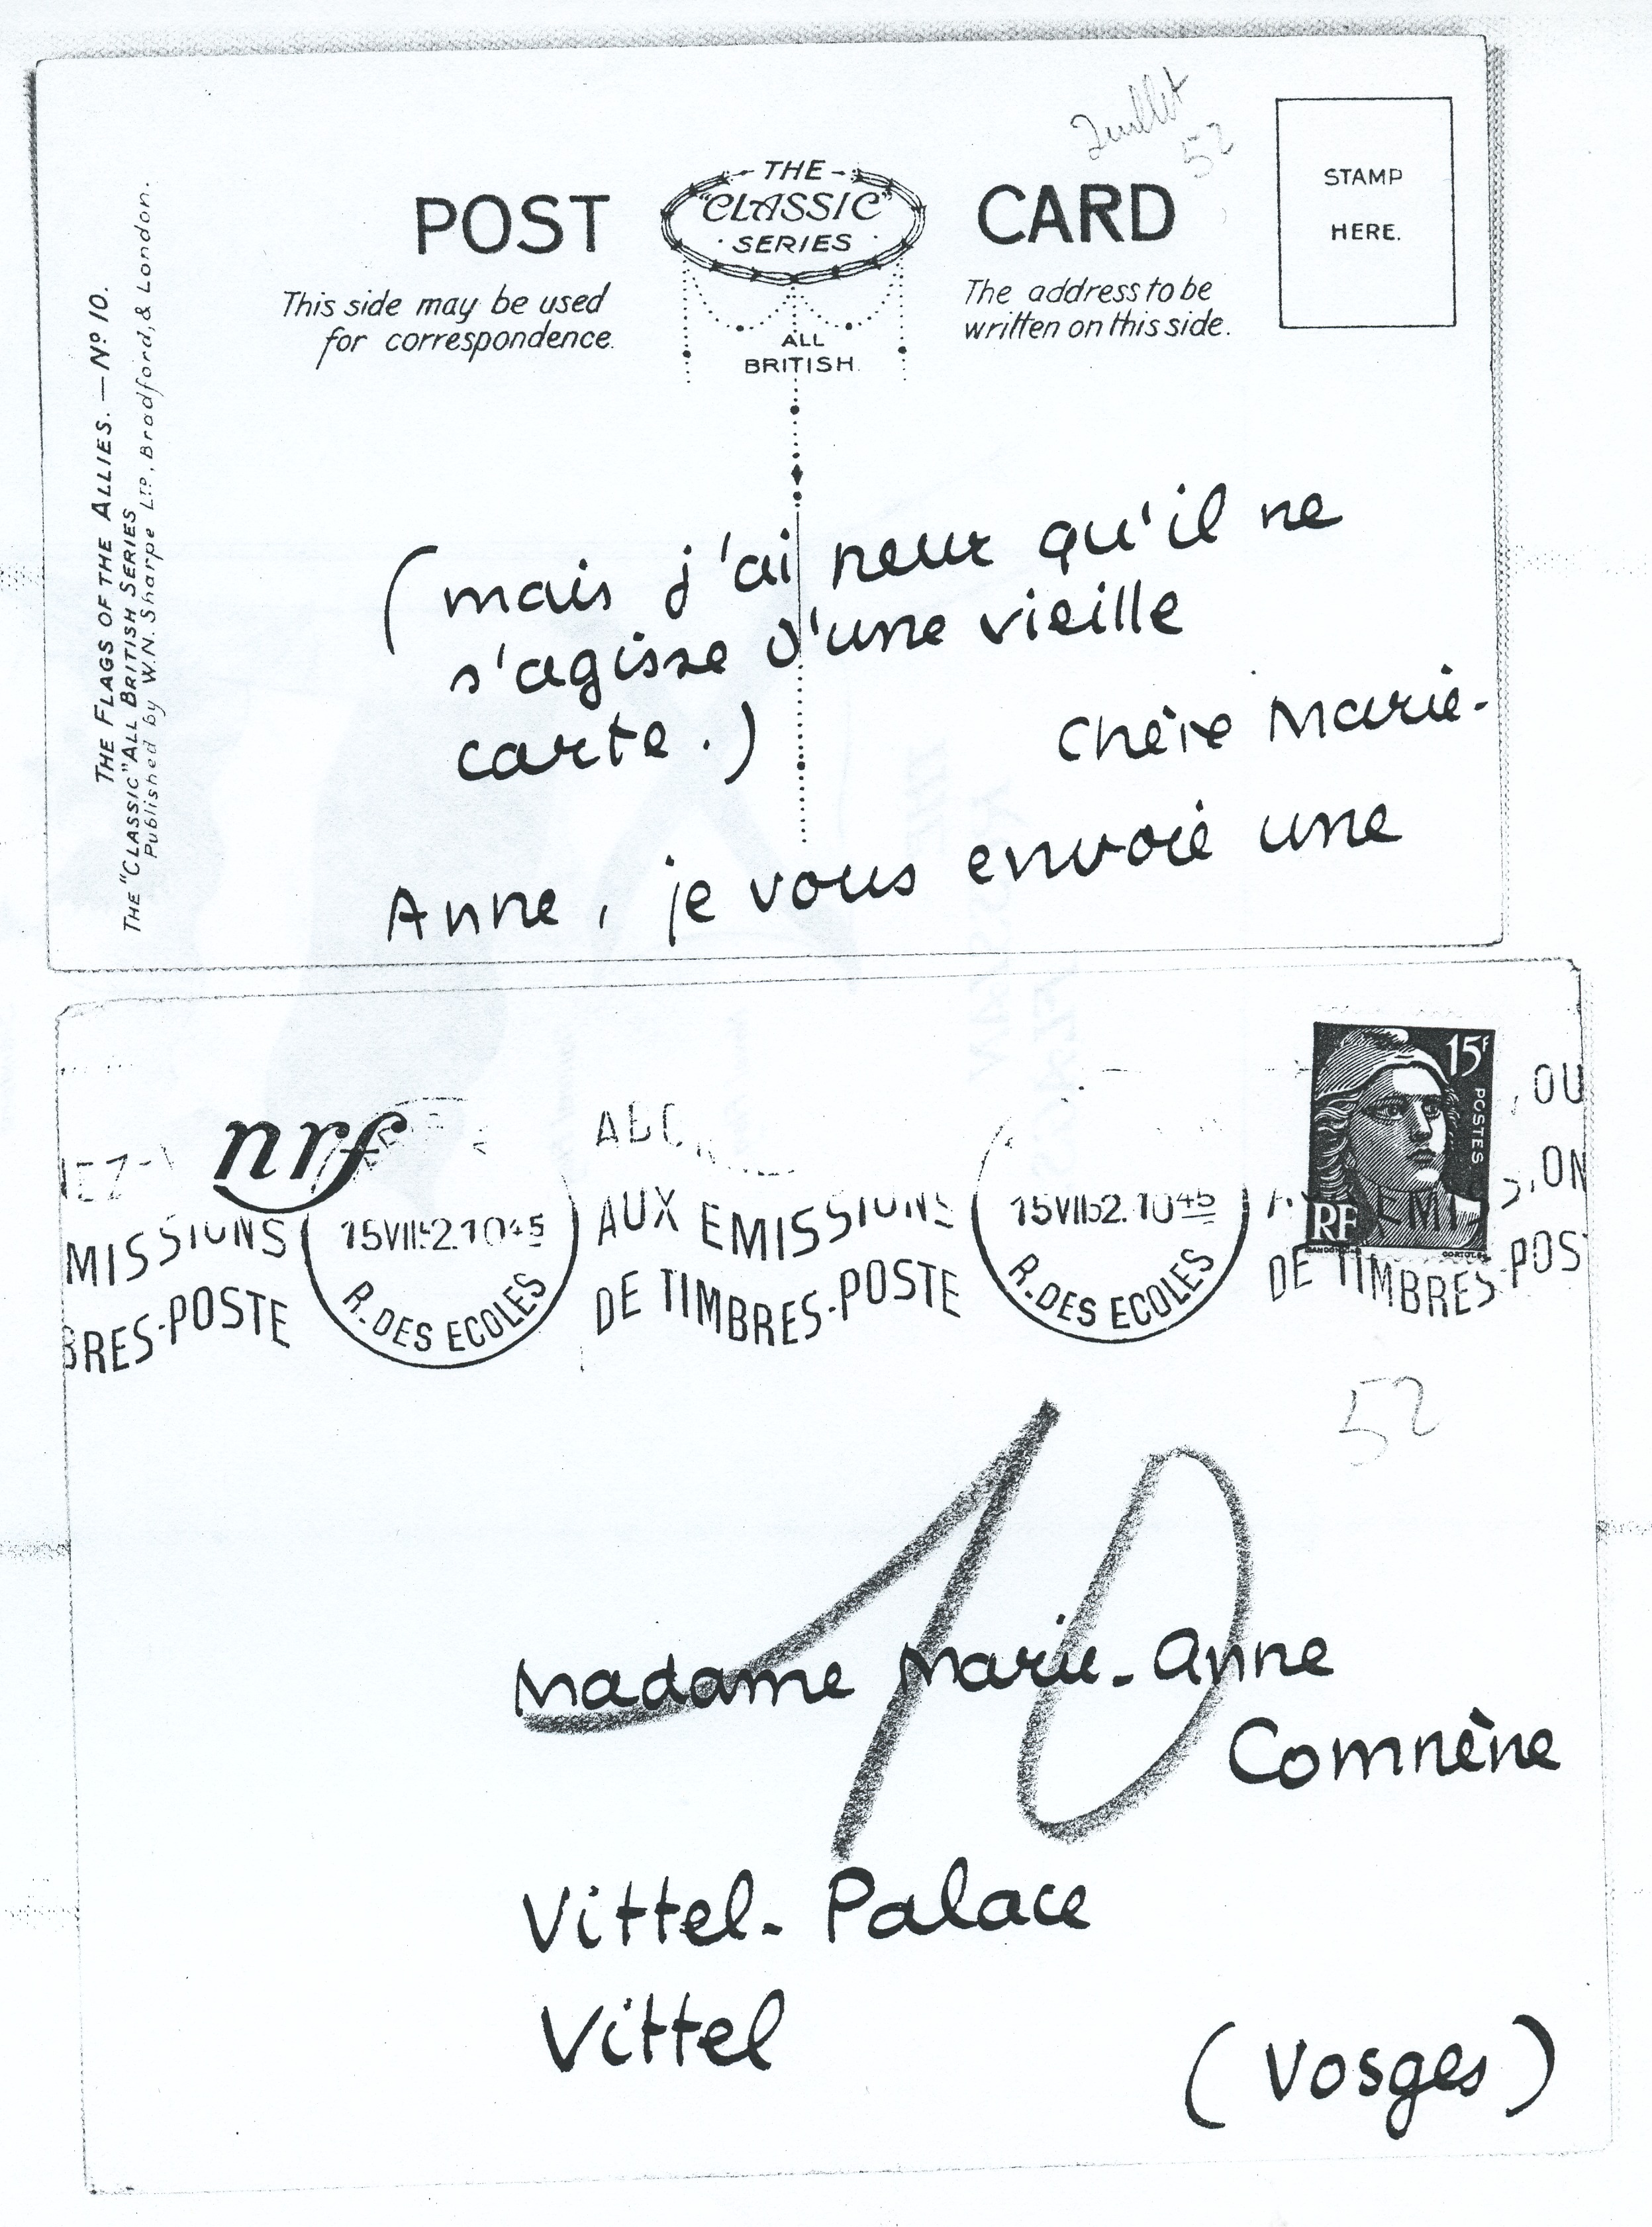 Juillet
52
POST
THE
"CLASSIC"
SERIES
CARD
STAMP
HERE.
This side may be used
for correspondence.
The address to be
written on this side.
ALL
BRITISH.
THE FLAGS OF THE ALLIES. — Nº 10.
THE "CLASSIC" ALL BRITISH SERIES
Published by W.N. Sharpe LTD, Bradford, & London.
(mais j'ai peur qu'il ne
s'agisse d'une vieille
carte.)
Chère Marie-
Anne, je vous envoie une
nrf
15F
POSTES
RF
15VII52.1045
R. DES ECOLES
AUX EMISSIONS
DE TIMBRES-POSTE
15VII52.1045
R. DES ECOLES
DE TIMBRES-POST
MISSIONS
BRES-POSTE
52
10
Madame Marie-Anne
Comnène
Vittel-Palace
Vittel
(Vosges)